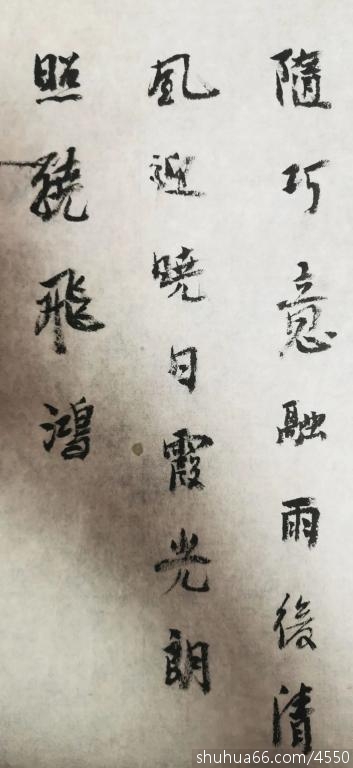 隨巧意融雨後清
風迎曉日霞光朗
照繞飛鴻
shuhua66.com/4550